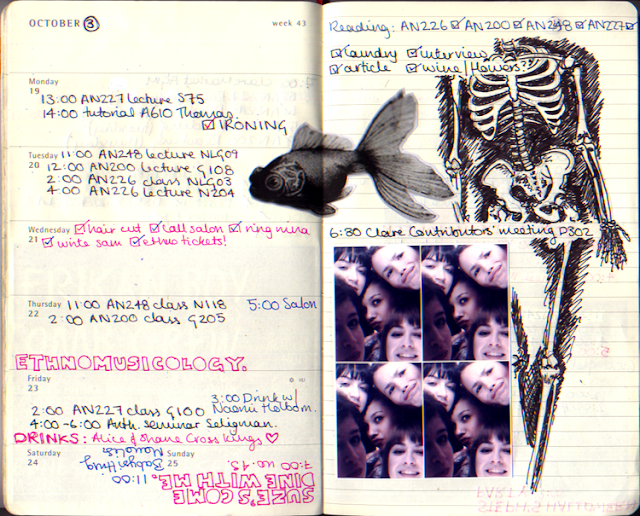 OCTOBER 3
week 43
Monday
19
13:00 AN227 lecture S75
14:00 tutorial A610 Thomas.
IRONING
Tuesday
20
11:00 AN248 lecture NLG09
12:00 AN200 lecture G108
2:00 AN226 class NLG03
4:00 AN226 lecture N204
Wednesday
21
hair cut call salon ring nina
write sam ethno tickets!
Thursday
22
11:00 AN248 class N118
5:00 Salon
2:00 AN200 class G205
ETHNOMUSICOLOGY.
Friday
23
3:00 Drink w/
Naomi Holbom.
2:00 AN227 class G100
4:00-6:00 Anth. seminar Seligman.
DRINKS: Alice & Shane Cross Kings ♡
Saturday
24
Sunday
25
11:00
Babysitting
SUZE'S COME
DINE WITH ME.
7:00 no. 13.
Reading: AN226 AN200 AN248 AN227
laundry interview
article wine/flowers??
6:30 Clare Contributors' meeting D302
STEPH'S HALLOWEEN
PARTY